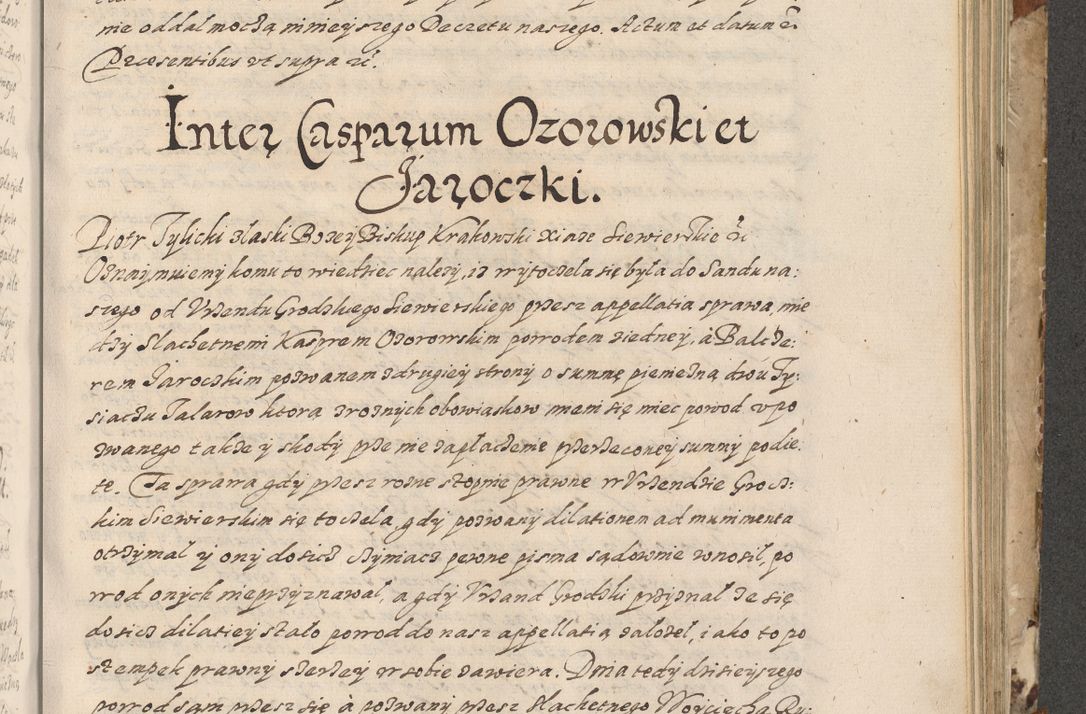 nie oddal moczą ninieyszego Decretu naszego. Actum et datum
Præsentibus vt supra
Inter Casparum Ozorowski et
Jaroczki.
Piotr Tylicki z łaski Bozey Biskup Krakowski Xiąze Siewierskie
Oznaymuiemy komu to wiedziec nalezy, iz wytoczela się była do Sandu na:
szego od Vrzendu Grodzkiego Siewierskiego przez appellatią sprawa mie
dzy Slachetnem Kasprem Ozorowskim powodem z iedney, à Balcze:
rem Jaroczkim pozwanem z drugiey strony o summę piemezną dwu Ty:
siączu Talarow ktorą z roznych obowiąskow miam się miec powod v po
zwanego takze y skody prze nie zapłaczenie przerzeconey summy podie:
te. Ta sprawa gdy przez rozne stopnie prawne w Vrzendzie Grocz:
kim Siewierskim się toczela, gdy pozwany dilationem ad munimenta
otrzymał y ony dosicz czyniącz pewne pisma sądownie wnosił, po
wod onych nieprzyznawał, a gdy Vrzand Grodzki przyznał ze się
dosicz dilatiey stało powod do nasz appellatią załozeł, iako to po
stempek prawny szerzey w sobie zawiera. Dnia tedy dzisieyszego
powod sam przez się à pozwany przez Slachetnego Woyciecha Ry: